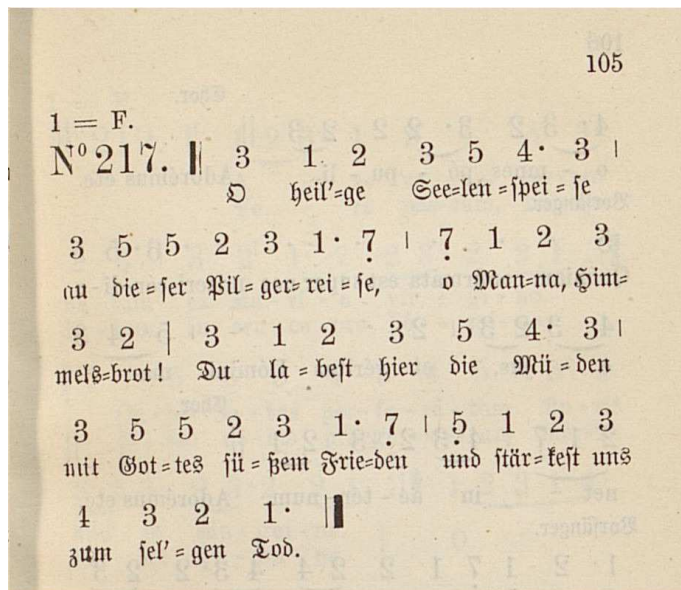 105
1 = F.
Nº 217. 𝄃 3 1 2 3 5 4· 3 |
O heil'=ge See=len=spei=se
3 5 5 2 3 1· 7̣ | 7̣ 1 2 3
au die=ser Pil=ger=rei=se, o Man=na, Him=
3 2 | 3 1 2 3 5 4· 3 |
mels=brot! Du la=best hier die Mü=den
3 5 5 2 3 1· 7̣ | 5̣ 1 2 3
mit Got=tes sü=ßem Frie=den und stär=kest uns
4 3 2 1· ‖
zum sel'=gen Tod.